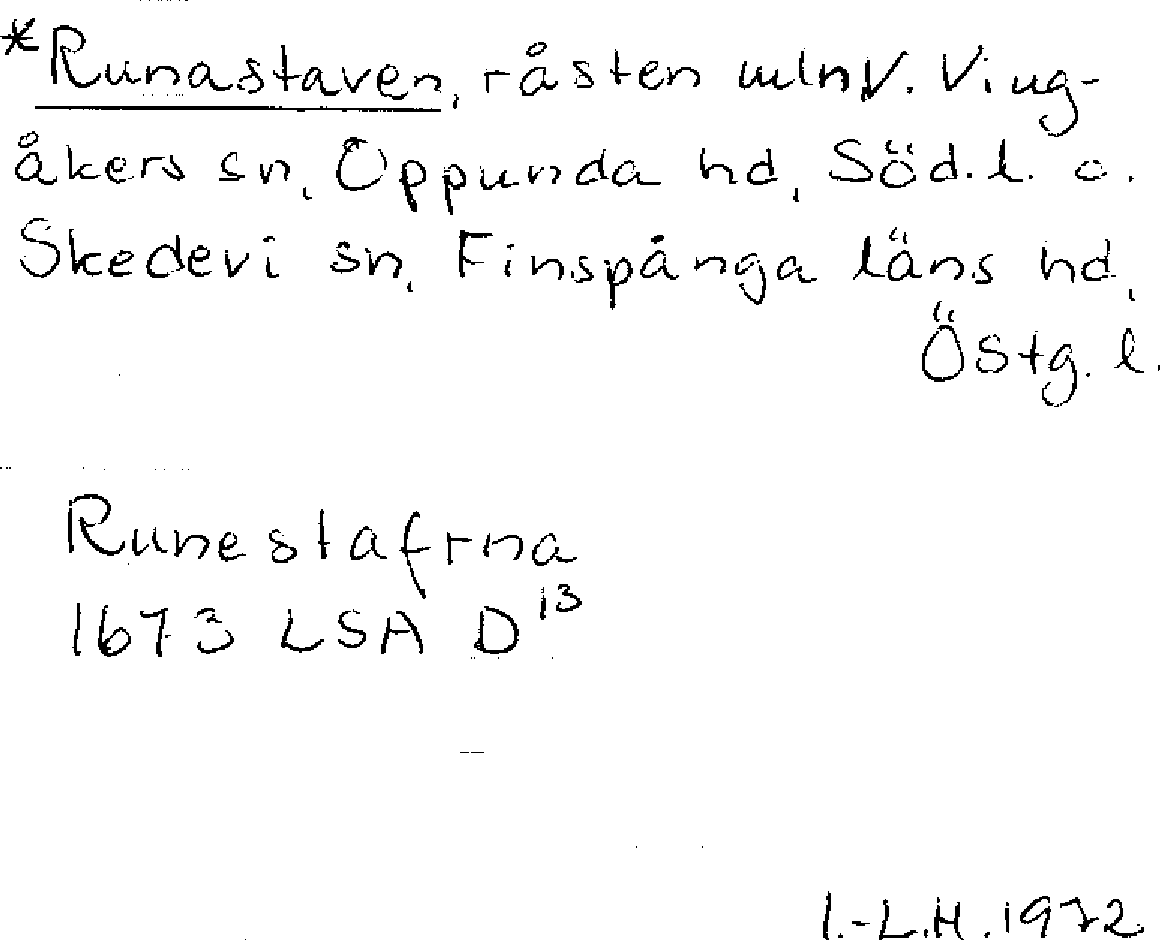 *Runastaven, råsten mln V. Ving-
åkers sn, Oppunda hd, Söd. l. o.
Skedevi sn, Finspånga läns hd,
Östg. l.
Runestafrna
1673 LSA D 13
I.-L.H. 1972